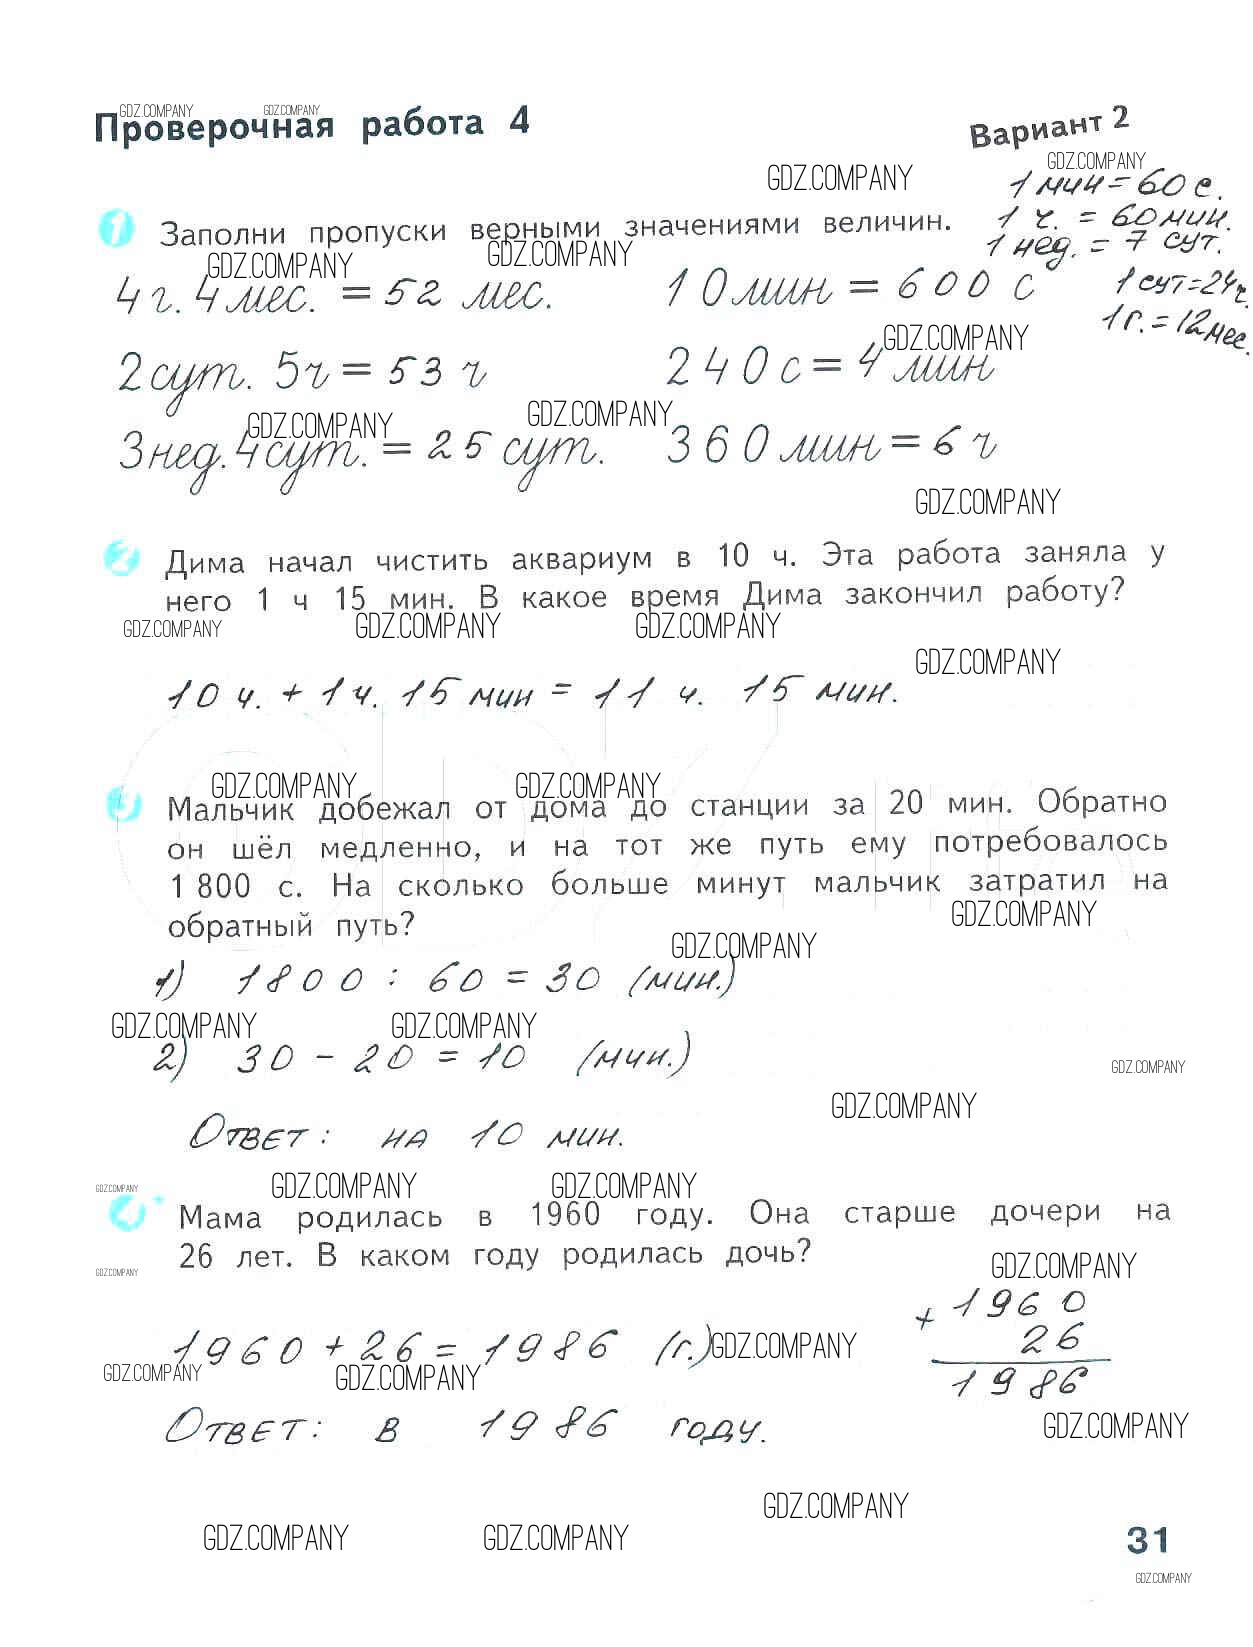 GDZ.COMPANY GDZ.COMPANY
Проверочная работа 4 Вариант 2
GDZ.COMPANY GDZ.COMPANY
1 мин = 60 с.
1 Заполни пропуски верными значениями величин. 1 ч. = 60 мин.
GDZ.COMPANY GDZ.COMPANY 1 нед. = 7 сут.
4 г. 4 мес. = 52 мес. 10 мин = 600 с 1 сут = 24 ч.
GDZ.COMPANY 1 г. = 12 мес.
2 сут. 5 ч = 53 ч 240 с = 4 мин
GDZ.COMPANY GDZ.COMPANY
3 нед. 4 сут. = 25 сут. 360 мин = 6 ч
GDZ.COMPANY
2 Дима начал чистить аквариум в 10 ч. Эта работа заняла у
него 1 ч 15 мин. В какое время Дима закончил работу?
GDZ.COMPANY GDZ.COMPANY GDZ.COMPANY
GDZ.COMPANY
10 ч. + 1 ч. 15 мин = 11 ч. 15 мин.
GDZ.COMPANY GDZ.COMPANY
3 Мальчик добежал от дома до станции за 20 мин. Обратно
он шёл медленно, и на тот же путь ему потребовалось
1 800 с. На сколько больше минут мальчик затратил на
обратный путь? GDZ.COMPANY
GDZ.COMPANY
1) 1800 : 60 = 30 (мин.)
GDZ.COMPANY GDZ.COMPANY
2) 30 - 20 = 10 (мин.)
GDZ.COMPANY
GDZ.COMPANY
Ответ: на 10 мин.
GDZ.COMPANY GDZ.COMPANY GDZ.COMPANY
4* Мама родилась в 1960 году. Она старше дочери на
26 лет. В каком году родилась дочь?
GDZ.COMPANY GDZ.COMPANY
+ 1960
26
1960 + 26 = 1986 (г.) GDZ.COMPANY
GDZ.COMPANY GDZ.COMPANY 1986
Ответ: в 1986 году. GDZ.COMPANY
GDZ.COMPANY
GDZ.COMPANY GDZ.COMPANY 31
GDZ.COMPANY